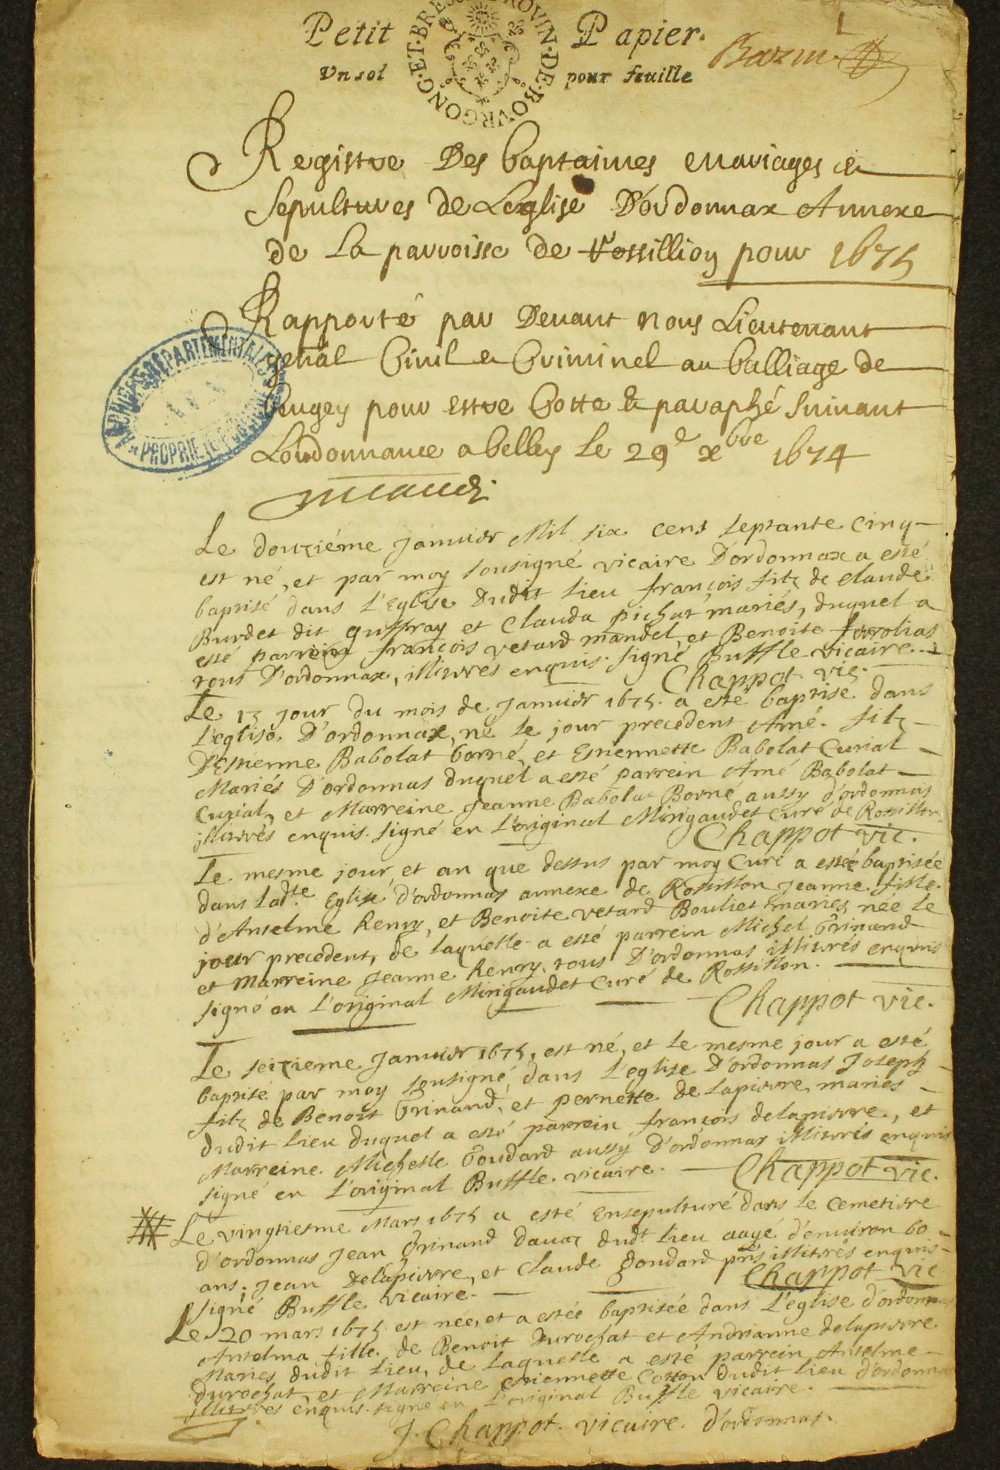 Petit Papier.
Un sol pour feuille
ET·BRES PROVIN·DE·BOVRGONG
Registre Des baptaimes mariages et
Sepultures de Leglise Dordonnax Annexe
de La parroisse de Rossillion pour 1675
Rapporté par Devant nous Lieutenant
genal Civil et Criminel au balliage de
beugey pour estre Cotte & paraphé Suivant
Lordonnance a belley le 29e xbre 1674
ARCHIVES DÉPARTEMENTALES
PROPRIÉTÉ
Le douziéme Januier Mil six cens septante cinq
est né, et par moy sousigné vicaire D'ordonnax a esté
baptisé dans L'Eglise Dudit lieu françois filz de claude
Burdet dit guffray et Clauda pichat mariés, duquel a
esté parrein françois vetard mandel, et Benoite
tous D'ordonnax, illitrés enquis. signé Buffle vicaire.
Chappot vic.
Le 13 jour du mois de Januier 1675. a esté baptisé dans
L'eglise D'ordonnax, né le jour precedent Amé. filz
D'Estienne Babolat borné, et Estiennette Babolat Curial
Mariés D'ordonnas duquel a esté parrein Amé Babolat
Curial, et Marreine Jeanne Babolat Borne aussy d'ordonnas
illitrés enquis. signé en L'original Mingaudet Curé de Rossillon
Chappot vic.
Le mesme jour et an que dessus par moy Curé a esté baptisée
dans ladte Eglise d'ordonnas annexe de Rossillon Jeanne fille
d'Anselme henry, et Benoite vetard Bouliet mariés, née le
jour precedent, de laquelle a esté parrein Michel Grinand
et Marreine Jeanne henry. tous D'ordonnas illitrés enquis
signé en L'original Mingaudet Curé de Rossillon.
Chappot vic.
Le seizieme Januier 1675, est né, et le mesme jour a esté
baptisé par moy sousigné, dans L'eglise D'ordonnas Joseph
filz de Benoit Grinand, et pernette de Lapierre mariés
dudit lieu duquel a esté parrein françois delapierre, et
Marreine Michelle Goudard aussy D'ordonnas illitrés enquis
signé en L'original Buffle vicaire.
Chappot vic.
Le vingtiesme Mars 1675 a esté Ensepulturé dans le Cemetiere
d'ordonnas Jean Grinand dudt lieu aagé d'environ 60
ans. Jean delapierre, et Claude Goudard pnts illitrés enquis
signé Buffle vicaire.
Chappot vic
Le 20 mars 1675 est née, et a estée baptisée dans L'eglise d'ordonnas
Anselma fille de Benoit Durochat et Andrianne delapierre
Mariés dudit lieu, de Laquelle a esté parrein Anselme
durochat, et Marreine Etiennette Cotton dudit lieu d'ordonnas
illitrés enquis. signé en L'original Buffle vicaire.
J. Chappot. vicaire. d'ordonnas.